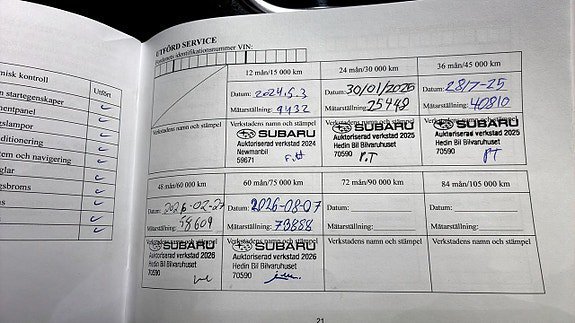 misk kontroll
Utfört
startegenskaper
mentpanel
gslampor
ditionering
tem och navigering
glar
gsbroms
UTFÖRD SERVICE
Fordonets identifikationsnummer VIN:
12 mån/15 000 km
Datum: 2024.5.3
Mätarställning: 9432
Verkstadens namn och stämpel
SUBARU
Auktoriserad verkstad 2024
Newmanbil
59671
24 mån/30 000 km
Datum: 30/01/2025
Mätarställning: 25448
Verkstadens namn och stämpel
SUBARU
Auktoriserad verkstad 2025
Hedin Bil Bilvaruhuset
70590
P.T
36 mån/45 000 km
Datum: 28/7-25
Mätarställning: 40810
Verkstadens namn och stämpel
SUBARU
Auktoriserad verkstad 2025
Hedin Bil Bilvaruhuset
70590
PT
48 mån/60 000 km
Datum: 2026-02-27
Mätarställning: 58609
Verkstadens namn och stämpel
SUBARU
Auktoriserad verkstad 2026
Hedin Bil Bilvaruhuset
70590
60 mån/75 000 km
Datum: 2026-08-07
Mätarställning: 79888
Verkstadens namn och stämpel
SUBARU
Auktoriserad verkstad 2026
Hedin Bil Bilvaruhuset
70590
72 mån/90 000 km
Datum:
Mätarställning:
Verkstadens namn och stämpel
84 mån/105 000 km
Datum:
Mätarställning:
Verkstadens namn och stämpel
21